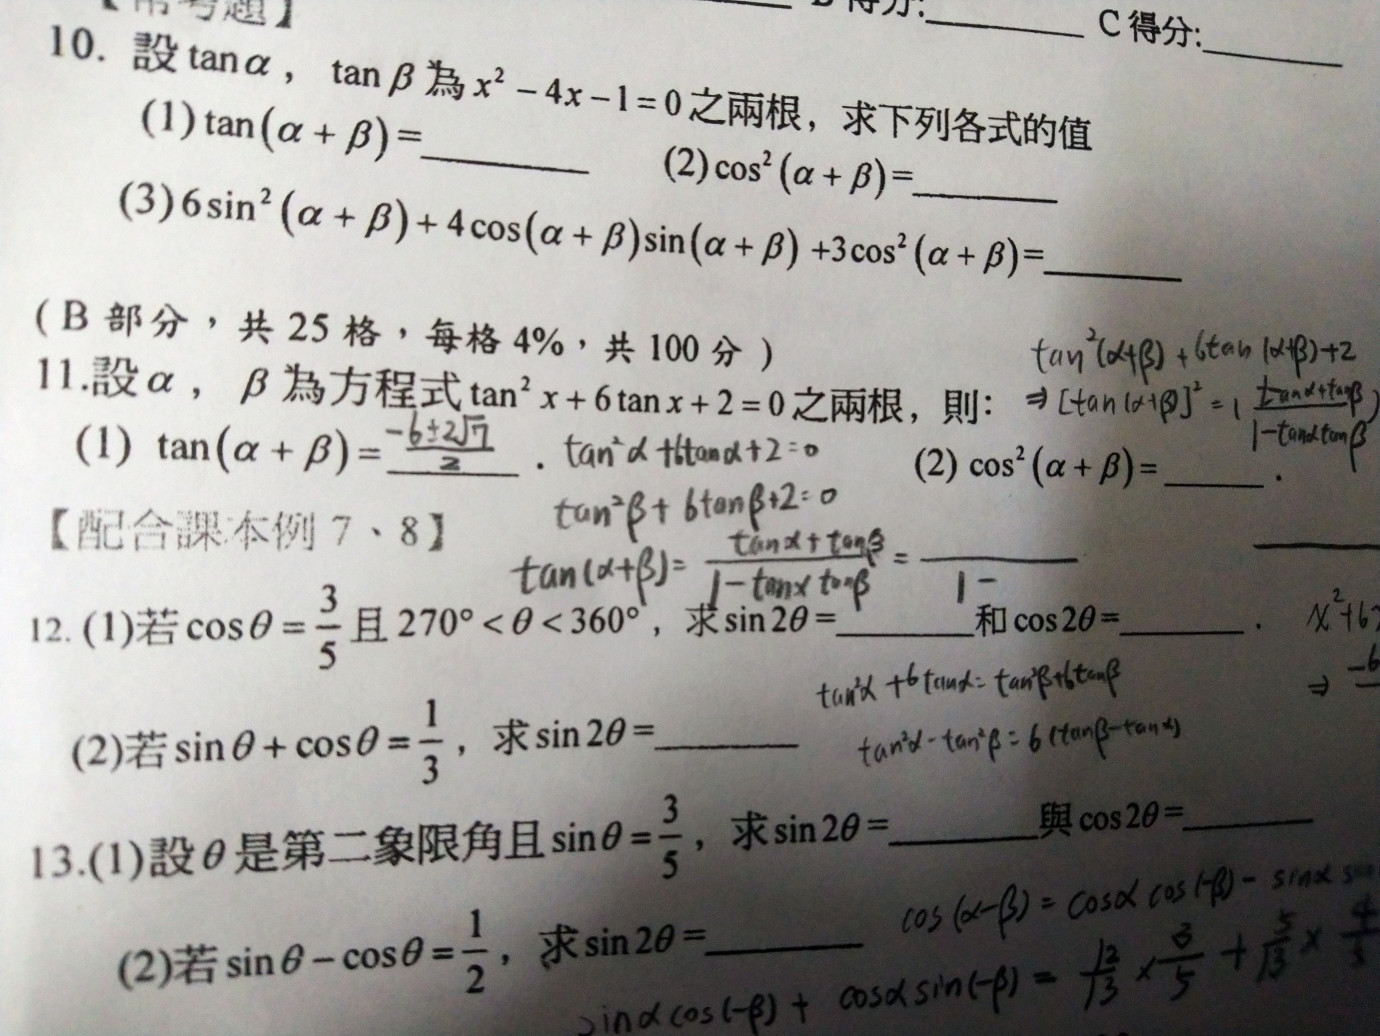 【常考題】
B得分:______ C得分:______
10. 設 tanα， tanβ 為 x² − 4x − 1 = 0 之兩根，求下列各式的值
(1) tan(α + β) = ______ (2) cos²(α + β) = ______
(3) 6sin²(α + β) + 4cos(α + β)sin(α + β) + 3cos²(α + β) = ______
( B 部分，共 25 格，每格 4%，共 100 分 )
tan²(α+β) + 6tan(α+β)+2
11.設 α， β 為方程式 tan² x + 6 tan x + 2 = 0 之兩根，則：
⇒ [tan(α+β)]² = ( (tanα+tanβ)/(1−tanα tanβ) )
(1) tan(α + β) = (−6±2√7)/2 . tan²α+6tanα+2=0 (2) cos²(α + β) = ______ .
tan²β + 6tanβ+2=0
【配合課本例 7、8】
tan(α+β)= (tanα+tanβ)/(1−tanα tanβ) = ──/(1−)
12. (1)若 cosθ = 3/5 且 270° < θ < 360°，求 sin 2θ = ______ 和 cos 2θ = ______ .
x²+6
⇒ −6
tan²α +6tanα= tan²β+6tanβ
(2)若 sinθ + cosθ = 1/3，求 sin 2θ = ______
tan²α−tan²β= 6(tanβ−tanα)
13.(1)設 θ 是第二象限角且 sinθ = 3/5，求 sin 2θ = ______ 與 cos 2θ = ______
cos(α−β) = cosα cos(−β)− sinα
(2)若 sinθ − cosθ = 1/2，求 sin 2θ = ______
sinα cos(−β) + cosα sin(−β) = 12/13 × 3/5 + 5/13 ×